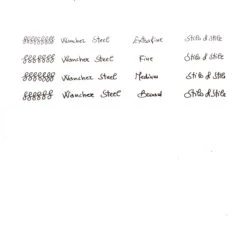 Wancher Steel Extrafine Stilo & Stile
Wancher Steel Fine Stilo & Stile
Wancher Steel Medium Stilo & Stile
Wancher Steel Broad Stilo & Stile